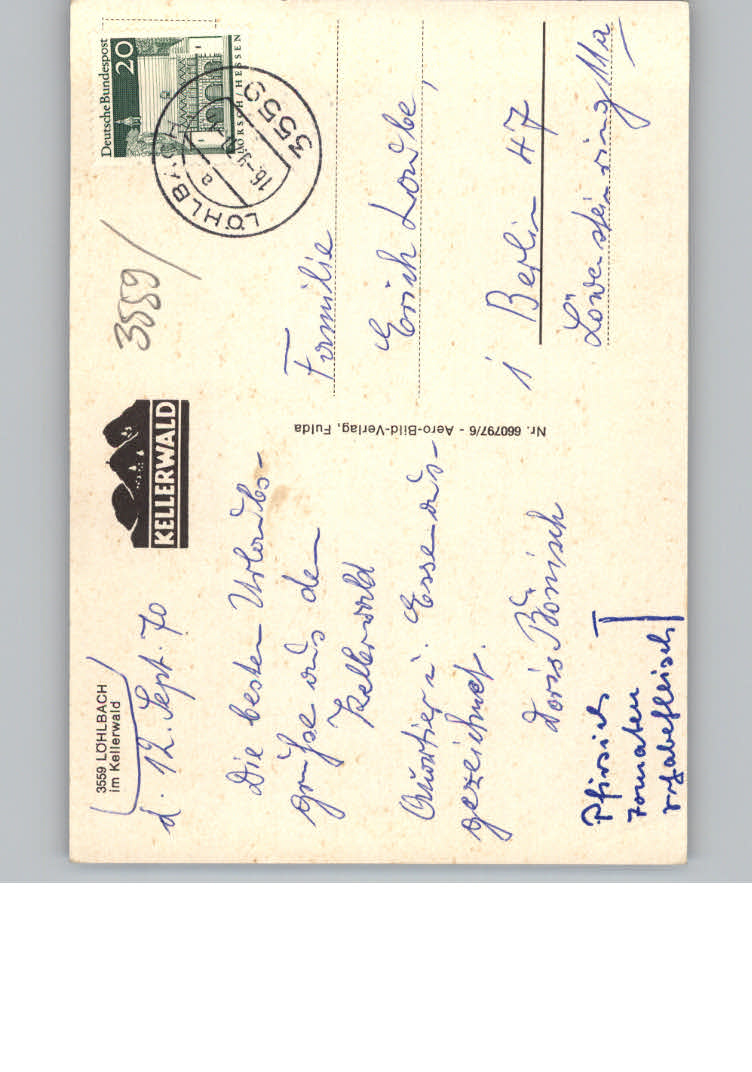 3559 LÖHLBACH
im Kellerwald
d. 12. Sept. 70
KELLERWALD
Die besten Urlaubs-
grüße aus dem
Kellerwald
Quartier u. Esse aus-
gezeichnet.
Doris Bönisch
Pfirsich
Tomaten
Nr. 660797/6 - Aero-Bild-Verlag, Fulda
3559
Deutsche Bundespost
20
LORSCH/HESSEN
LÖHLBACH
a
3559
Familie
Erich
1 Berlin 47
Löwensteinring 11a